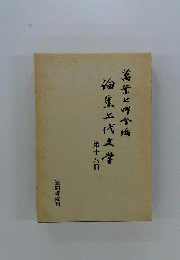 萬葉七曜会編
論集上代文学
第十八冊
笠間書院刊